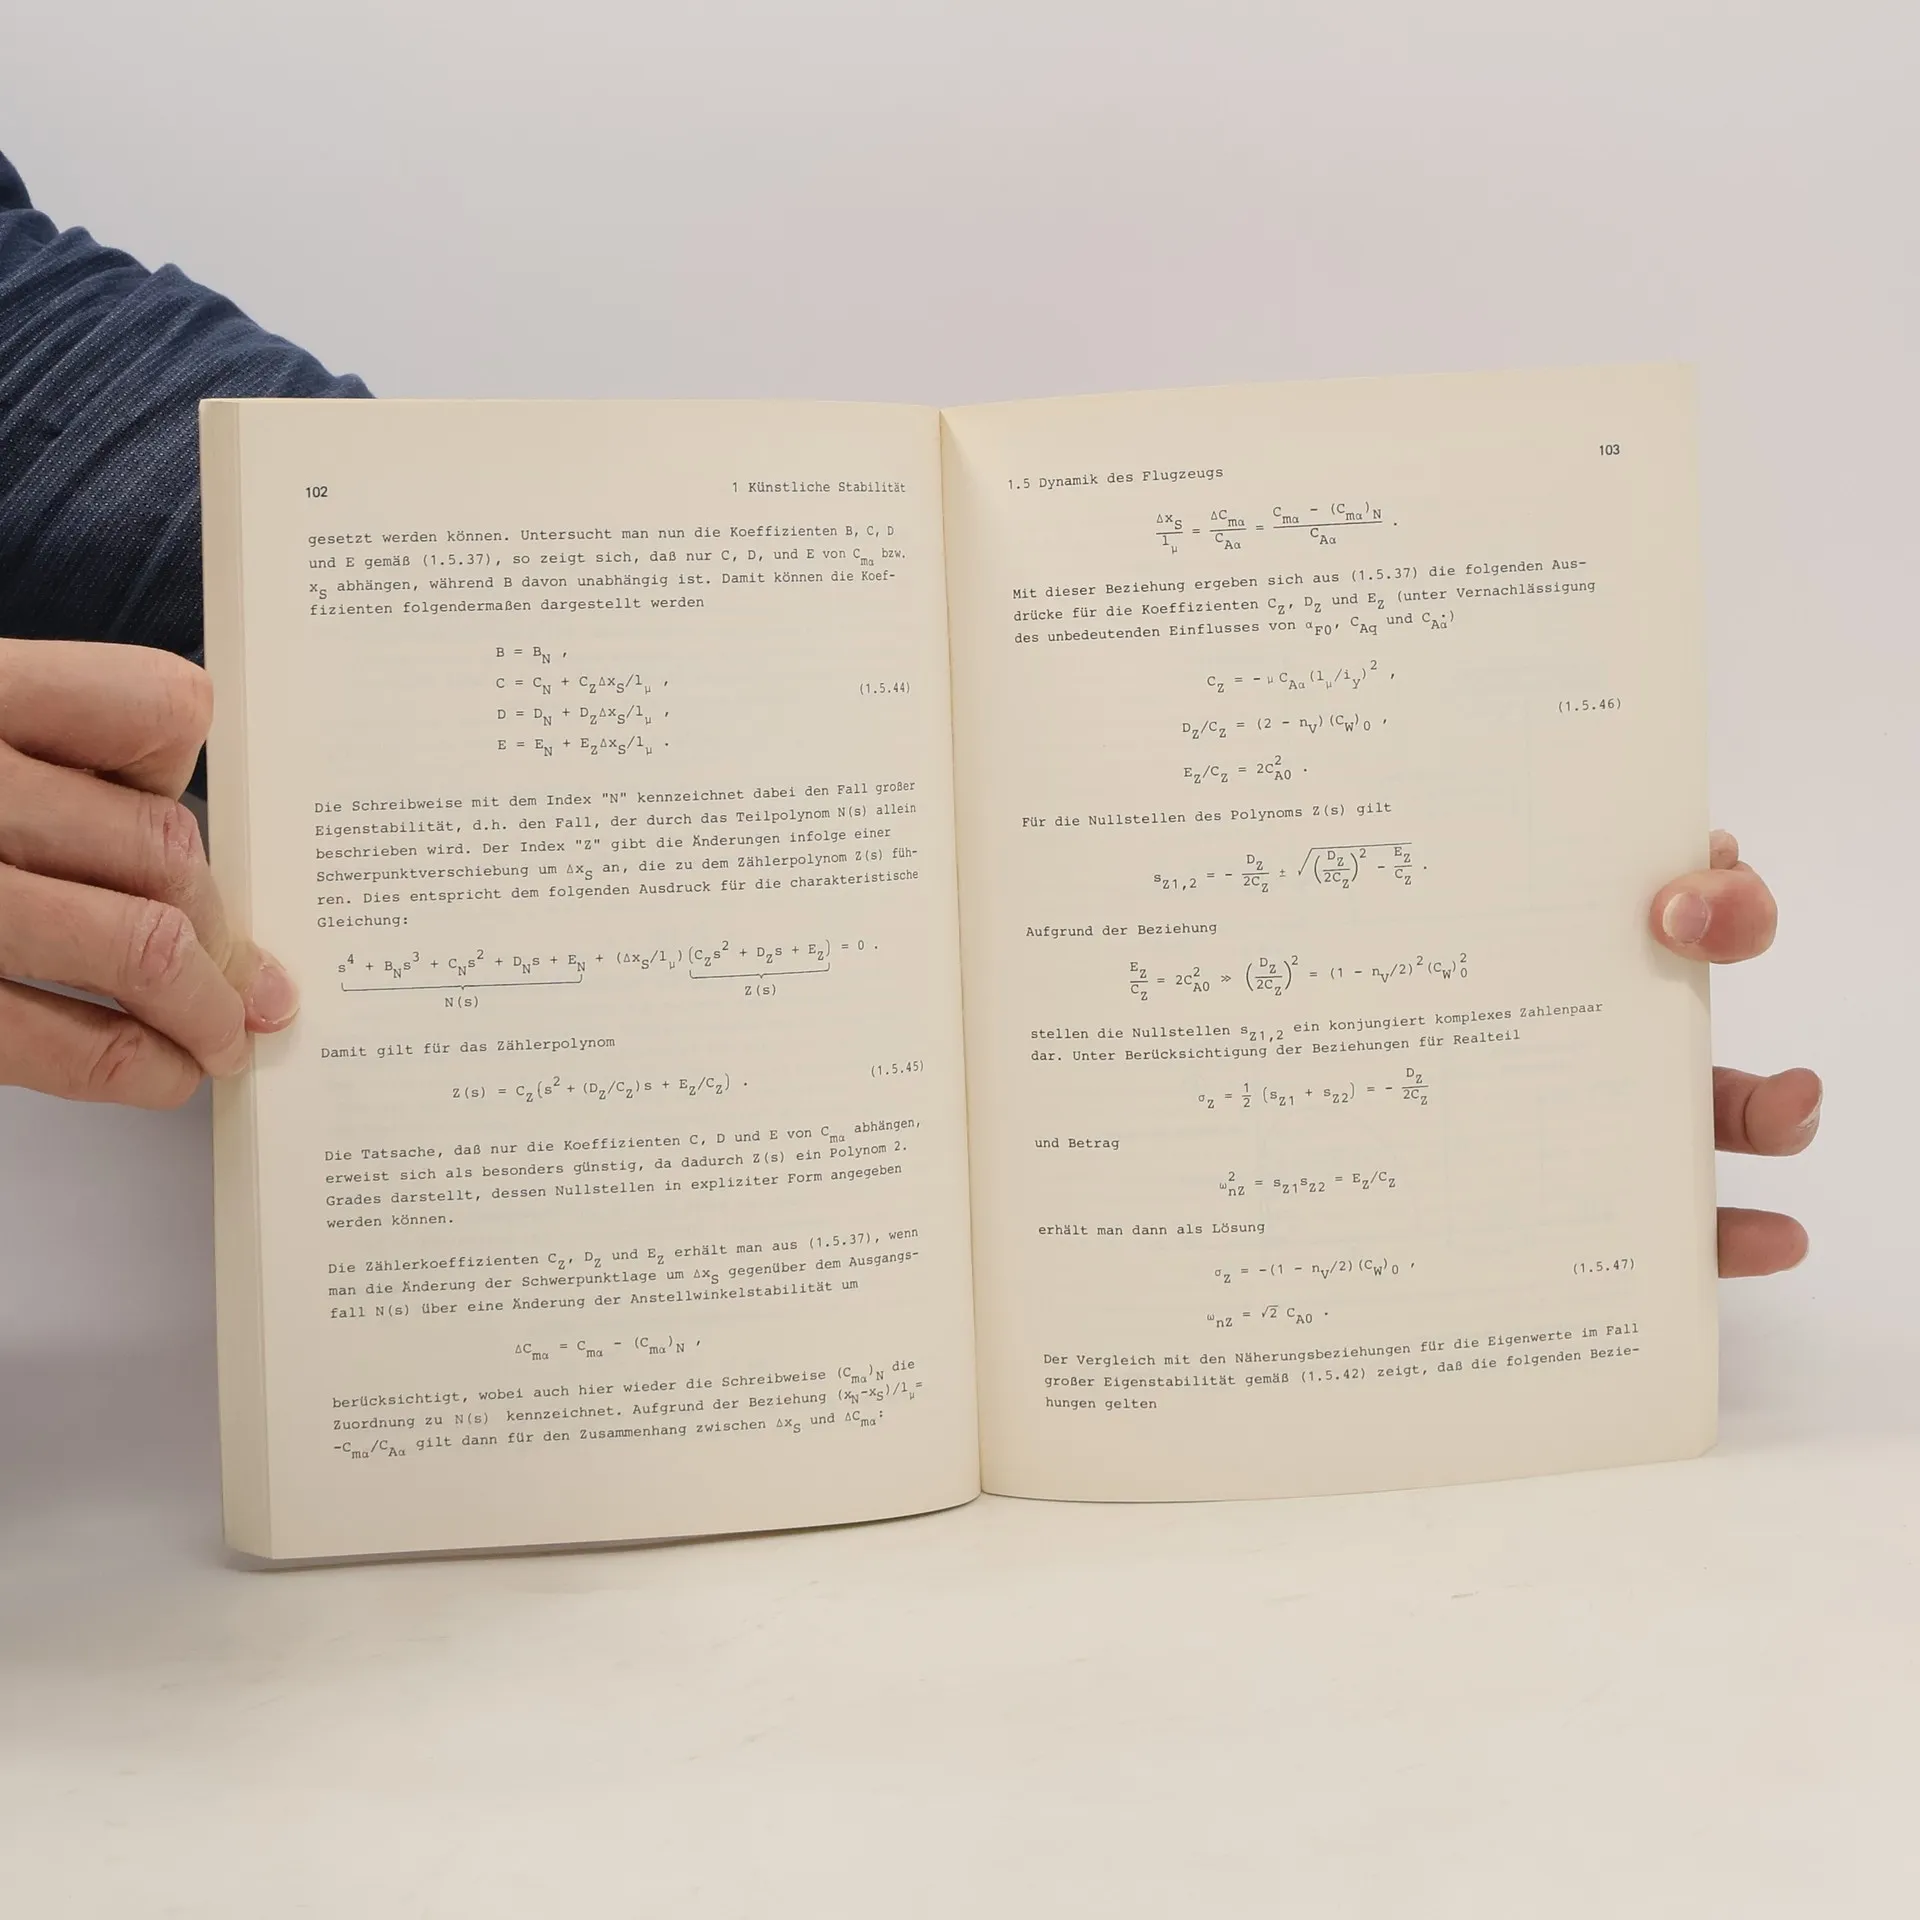 102
1 Künstliche Stabilität
gesetzt werden können. Untersucht man nun die Koeffizienten B, C, D
und E gemäß (1.5.37), so zeigt sich, daß nur C, D, und E von C_mα bzw.
x_S abhängen, während B davon unabhängig ist. Damit können die Koef-
fizienten folgendermaßen dargestellt werden
B = B_N ,
C = C_N + C_Z Δx_S/l_μ ,
(1.5.44)
D = D_N + D_Z Δx_S/l_μ ,
E = E_N + E_Z Δx_S/l_μ .
Die Schreibweise mit dem Index "N" kennzeichnet dabei den Fall großer
Eigenstabilität, d.h. den Fall, der durch das Teilpolynom N(s) allein
beschrieben wird. Der Index "Z" gibt die Änderungen infolge einer
Schwerpunktverschiebung um Δx_S an, die zu dem Zählerpolynom Z(s) füh-
ren. Dies entspricht dem folgenden Ausdruck für die charakteristische
Gleichung:
s^4 + B_N s^3 + C_N s^2 + D_N s + E_N + (Δx_S/l_μ)(C_Z s^2 + D_Z s + E_Z) = 0 .
N(s) Z(s)
Damit gilt für das Zählerpolynom
Z(s) = C_Z(s^2 + (D_Z/C_Z)s + E_Z/C_Z) .
(1.5.45)
Die Tatsache, daß nur die Koeffizienten C, D und E von C_mα abhängen,
erweist sich als besonders günstig, da dadurch Z(s) ein Polynom 2.
Grades darstellt, dessen Nullstellen in expliziter Form angegeben
werden können.
Die Zählerkoeffizienten C_Z, D_Z und E_Z erhält man aus (1.5.37), wenn
man die Änderung der Schwerpunktlage um Δx_S gegenüber dem Ausgangs-
fall N(s) über eine Änderung der Anstellwinkelstabilität um
ΔC_mα = C_mα - (C_mα)_N ,
berücksichtigt, wobei auch hier wieder die Schreibweise (C_mα)_N die
Zuordnung zu N(s) kennzeichnet. Aufgrund der Beziehung (x_N-x_S)/l_μ=
-C_mα/C_Aα gilt dann für den Zusammenhang zwischen Δx_S und ΔC_mα:
1.5 Dynamik des Flugzeugs
103
Δx_S/l_μ = ΔC_mα/C_Aα = (C_mα - (C_mα)_N)/C_Aα .
Mit dieser Beziehung ergeben sich aus (1.5.37) die folgenden Aus-
drücke für die Koeffizienten C_Z, D_Z und E_Z (unter Vernachlässigung
des unbedeutenden Einflusses von α_F0, C_Aq und C_Aα̇)
C_Z = - μ C_Aα (l_μ/i_y)^2 ,
D_Z/C_Z = (2 - n_V)(C_W)_0 ,
(1.5.46)
E_Z/C_Z = 2C_A0^2 .
Für die Nullstellen des Polynoms Z(s) gilt
s_Z1,2 = - D_Z/2C_Z ± √((D_Z/2C_Z)^2 - E_Z/C_Z) .
Aufgrund der Beziehung
E_Z/C_Z = 2C_A0^2 ≫ (D_Z/2C_Z)^2 = (1 - n_V/2)^2 (C_W)_0^2
stellen die Nullstellen s_Z1,2 ein konjungiert komplexes Zahlenpaar
dar. Unter Berücksichtigung der Beziehungen für Realteil
σ_Z = 1/2 (s_Z1 + s_Z2) = - D_Z/2C_Z
und Betrag
ω_nZ^2 = s_Z1 s_Z2 = E_Z/C_Z
erhält man dann als Lösung
σ_Z = -(1 - n_V/2)(C_W)_0 ,
(1.5.47)
ω_nZ = √2 C_A0 .
Der Vergleich mit den Näherungsbeziehungen für die Eigenwerte im Fall
großer Eigenstabilität gemäß (1.5.42) zeigt, daß die folgenden Bezie-
hungen gelten